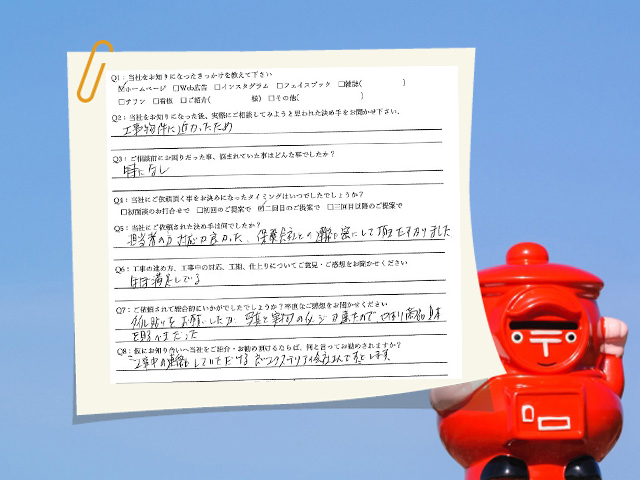 Q1：当社をお知りになったきっかけを教えて下さい
☑ホームページ □Web広告 □インスタグラム □フェイスブック □雑誌( )
□チラシ □看板 □ご紹介( 様) □その他( )
Q2：当社をお知りになった後、実際にご相談してみようと思われた決め手をお聞かせ下さい。
工事物件に近かったため
Q3：ご相談前にお困りだった事、悩まれていた事はどんな事でしたか？
特になし
Q4：当社にご依頼頂く事をお決めになったタイミングはいつでしたでしょうか？
□初面談のお打合せで □初回のご提案で ☑二回目のご提案で □三回目以降のご提案で
Q5：当社にご依頼された決め手は何でしたか？
担当者の方の対応が良かった、保険会社との連絡も密にして頂き助かりました
Q6：工事の進め方、工事中の対応、工期、仕上りについてご意見・ご感想をお聞かせください
満足している
Q7：ご依頼されて総合的にいかがでしたでしょうか？率直なご感想をお聞かせください
タイル貼りをお願いしたが、写真と実物のイメージが違ったので
Q8：仮にお知り合いへ当社をご紹介・お勧め頂けるならば、何と言ってお勧めされますか？
工事中の連絡もしていただける